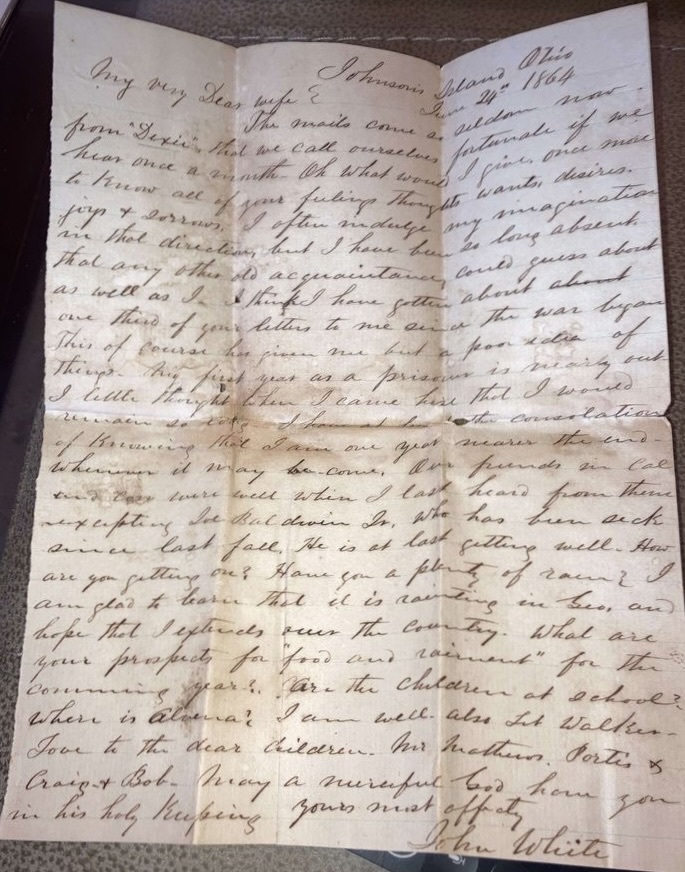 Johnson's Island Ohio
June 24th 1864
My very Dear wife
The mails come so seldom now
from "Dixie" that we call ourselves fortunate if we
hear once a month. Oh what would I give, once more
to Know all of your feelings thoughts wants, desires.
joys & sorrows. I often indulge my imagination
in that direction, but I have been so long absent
that any other old acquaintance, could guess about
as well as I. I think I have gotten about about
one third of your letters to me since the war began
This of course has given me but a poor idea of
things. My first year as a prisoner is nearly out
I little thought when I came here that I would
remain so long I have at the consolation
of Knowing that I am one year nearer the end-
whenever it may be come. Our friends in Cal
and were well when I last heard from them
excepting Joe Baldwin Jr, who has been sick
since last fall, He is at last getting well. How
are you getting on? Have you a plenty of rain? I
am glad to learn that it is rainting in Geo, and
hope that I extends over the country. What are
your prospects for "food and raiment" for the
comming year? Are the children at school?
where is Alvena? I am well- also Lt Walker-
Love to the dear children- Mr Mathews. Portis &
Craig & Bob- May a merciful God have you
in his holy Keeping yours most affcty
John White